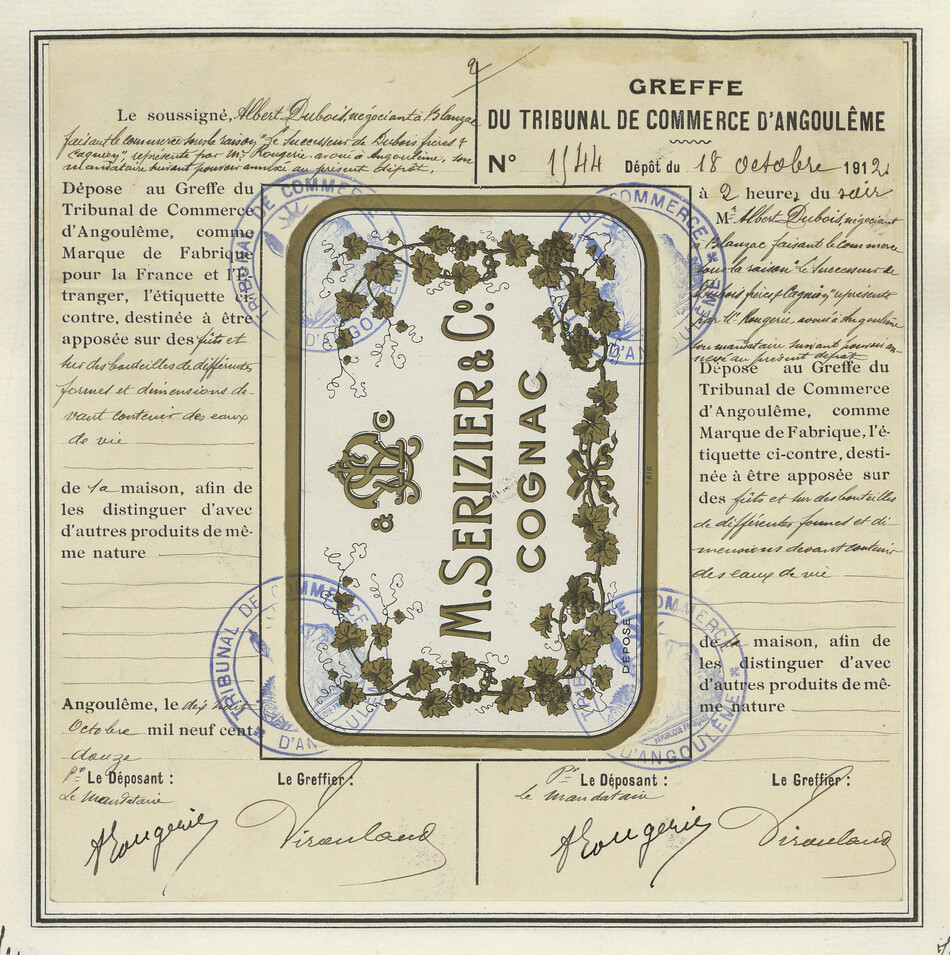 2
Le soussigné, Albert Dubois, négociant à Blanzac
faisant le commerce sous la raison "Le Successeur de Dubois frères &
Cagnion" représenté par Me Rougerie, avoué à Angoulême, son
mandataire suivant pouvoir annexé au présent dépôt,
Dépose au Greffe du
Tribunal de Commerce
d'Angoulême, comme
Marque de Fabrique
pour la France et l'É-
tranger, l'étiquette ci-
contre, destinée à être
apposée sur des fûts et
sur des bouteilles de différentes
formes et dimensions de-
vant contenir des eaux
de vie
de la maison, afin de
les distinguer d'avec
d'autres produits de mê-
me nature
Angoulême, le dix huit
Octobre mil neuf cent
douze
Pr Le Déposant :
Le Greffier :
Le Mandataire
Rougerie
GREFFE
DU TRIBUNAL DE COMMERCE D'ANGOULÊME
N° 1544 Dépôt du 18 octobre 1912
à 2 heures du soir
Mr Albert Dubois, négociant
à Blanzac faisant le commerce
sous la raison "Le Successeur de
Dubois frères & Cagnion" représenté
par Me Rougerie, avoué à Angoulême
son mandataire suivant pouvoir an-
nexé au présent dépôt
Dépose au Greffe du
Tribunal de Commerce
d'Angoulême, comme
Marque de Fabrique, l'é-
tiquette ci-contre, desti-
née à être apposée sur
des fûts et sur des bouteilles
de différentes formes et di-
mensions devant contenir
des eaux de vie
de la maison, afin de
les distinguer d'avec
d'autres produits de mê-
me nature
Pr Le Déposant :
Le Greffier :
Le Mandataire
Rougerie
M. SERIZIER & Co.
COGNAC
& Co
DÉPOSÉ
TRIBUNAL DE COMMERCE
D'ANGOULÊME
RÉPUBLIQUE FRANÇAISE